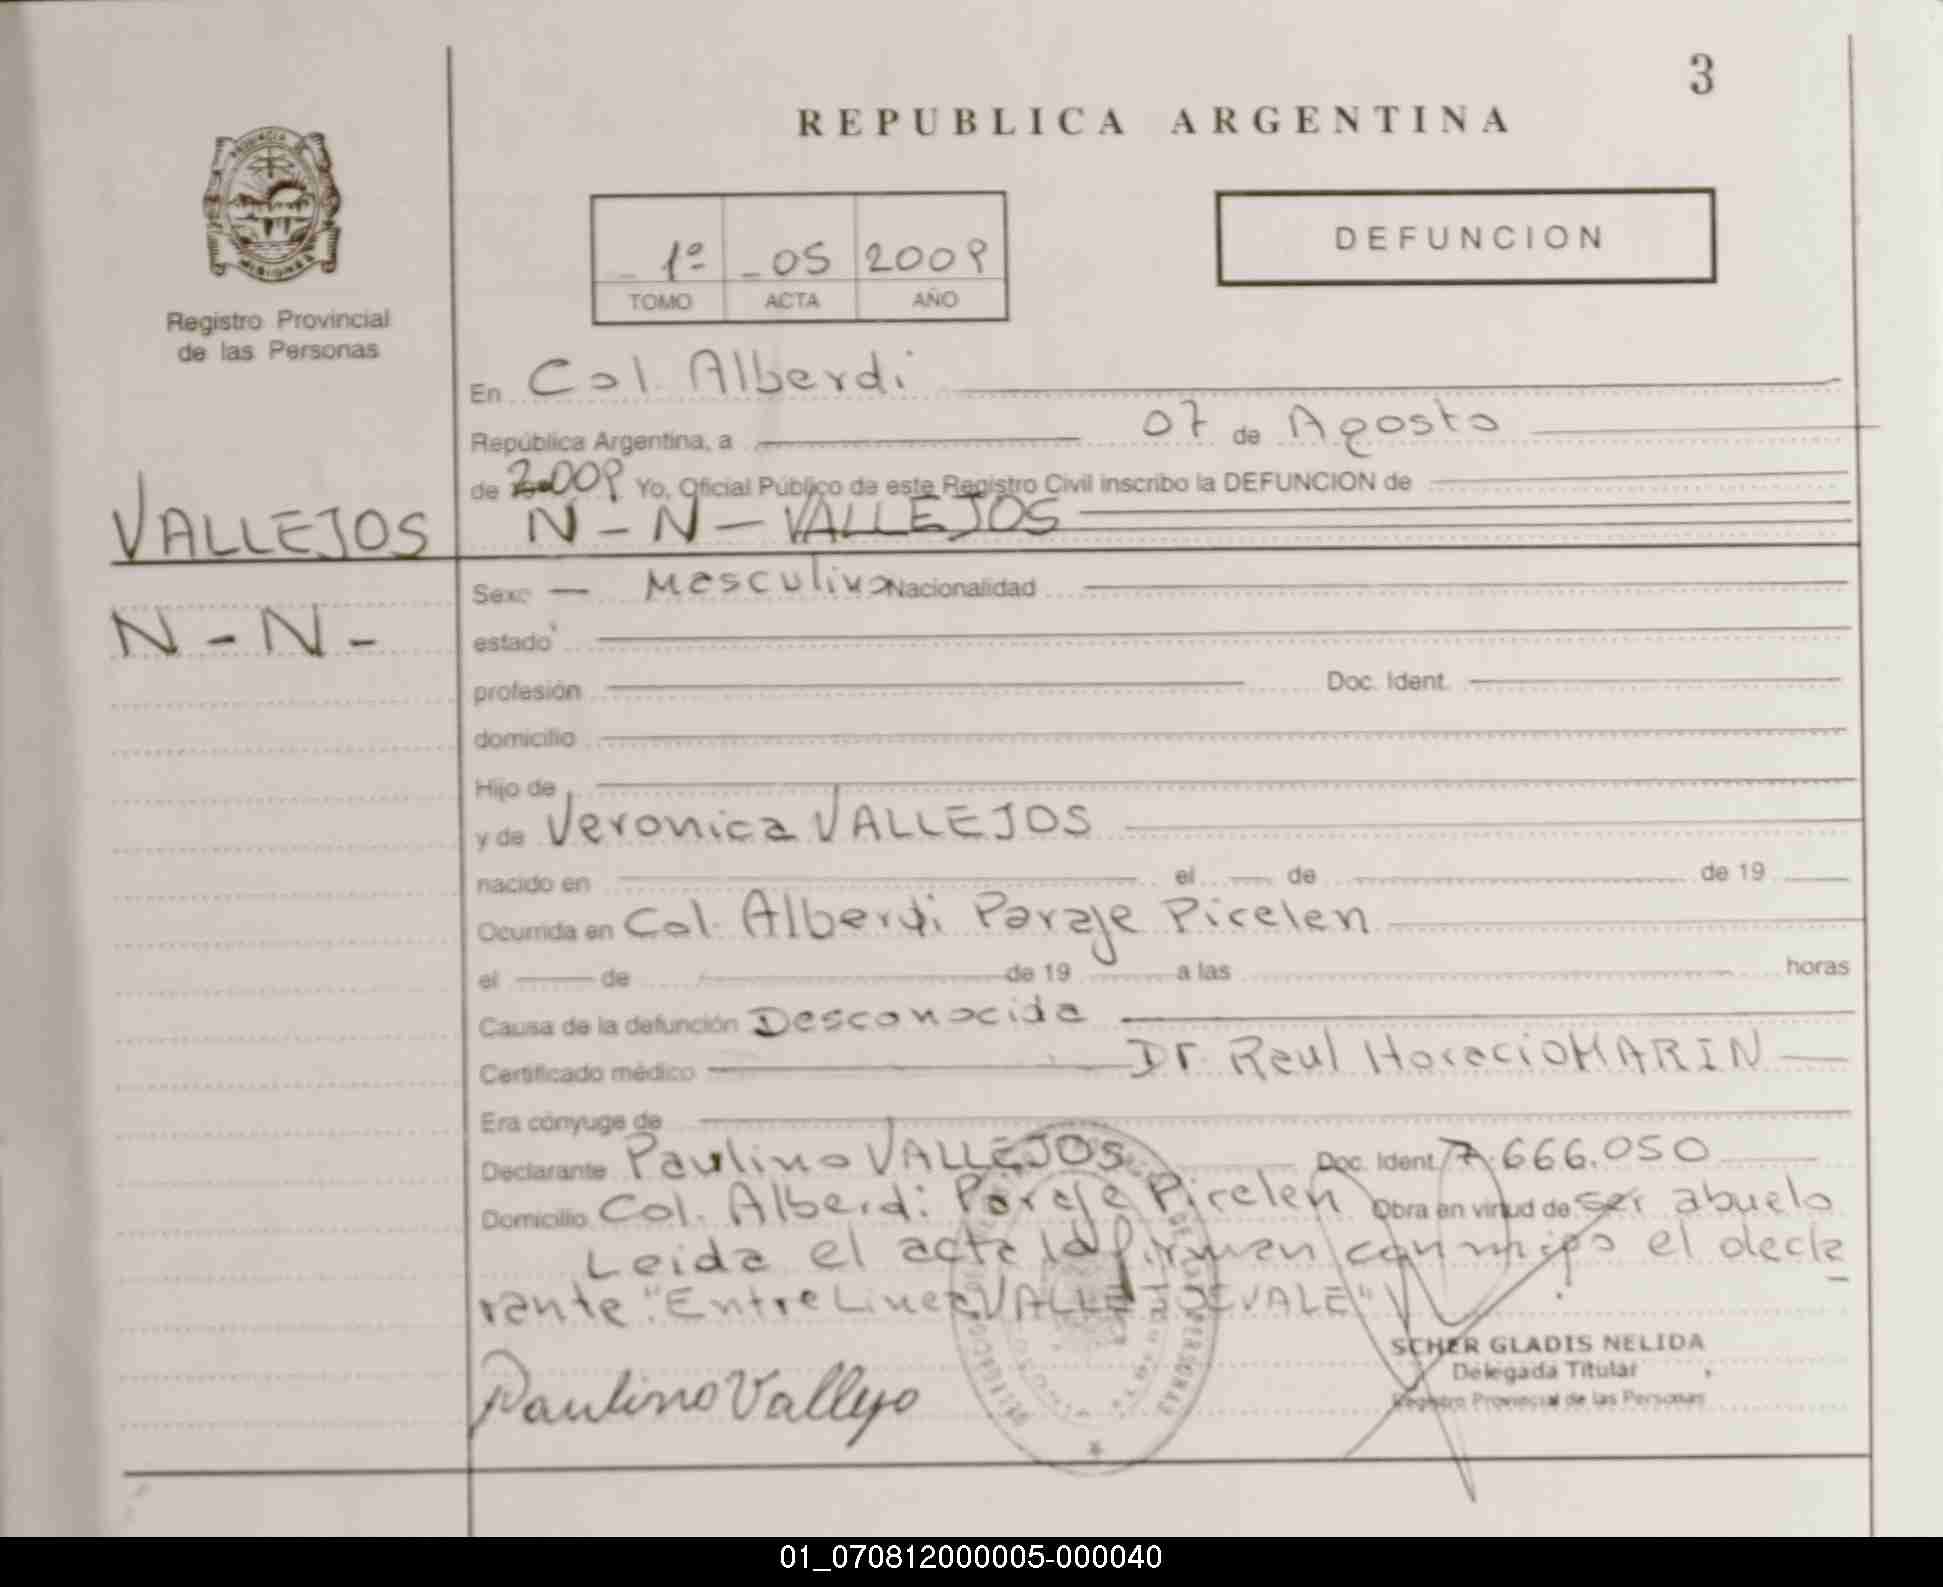 3
REPUBLICA ARGENTINA
DEFUNCION
1º 05 2009
TOMO ACTA AÑO
Registro Provincial
de las Personas
En Col. Alberdi
República Argentina, a 07 de Agosto
de 2009 Yo, Oficial Público de este Registro Civil inscribo la DEFUNCION de
VALLEJOS
N - N - VALLEJOS
N - N -
Sexo Masculino Nacionalidad
estado
profesión Doc. Ident.
domicilio
Hijo de
y de Veronica VALLEJOS
nacido en el de de 19
Ocurrida en Col. Alberdi Paraje Picelen
el de de 19 a las horas
Causa de la defunción Desconocida
Certificado médico Dr. Raul Horacio MARIN
Era cónyuge de
Declarante Paulino VALLEJOS Doc. Ident. 7.666.050
Domicilio Col. Alberdi Paraje Picelen Obra en virtud de ser abuelo
Leida el acta la firman conmigo el decla
rante "Entre Linea VALLEJOS VALE"
Paulino Vallejo
SCHER GLADIS NELIDA
Delegada Titular
Registro Provincial de las Personas
01_070812000005-000040